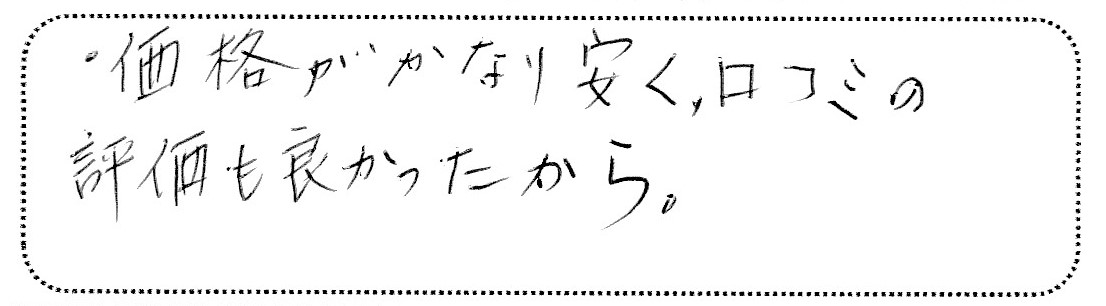 ・価格がかなり安く,口コミの
評価も良かったから。